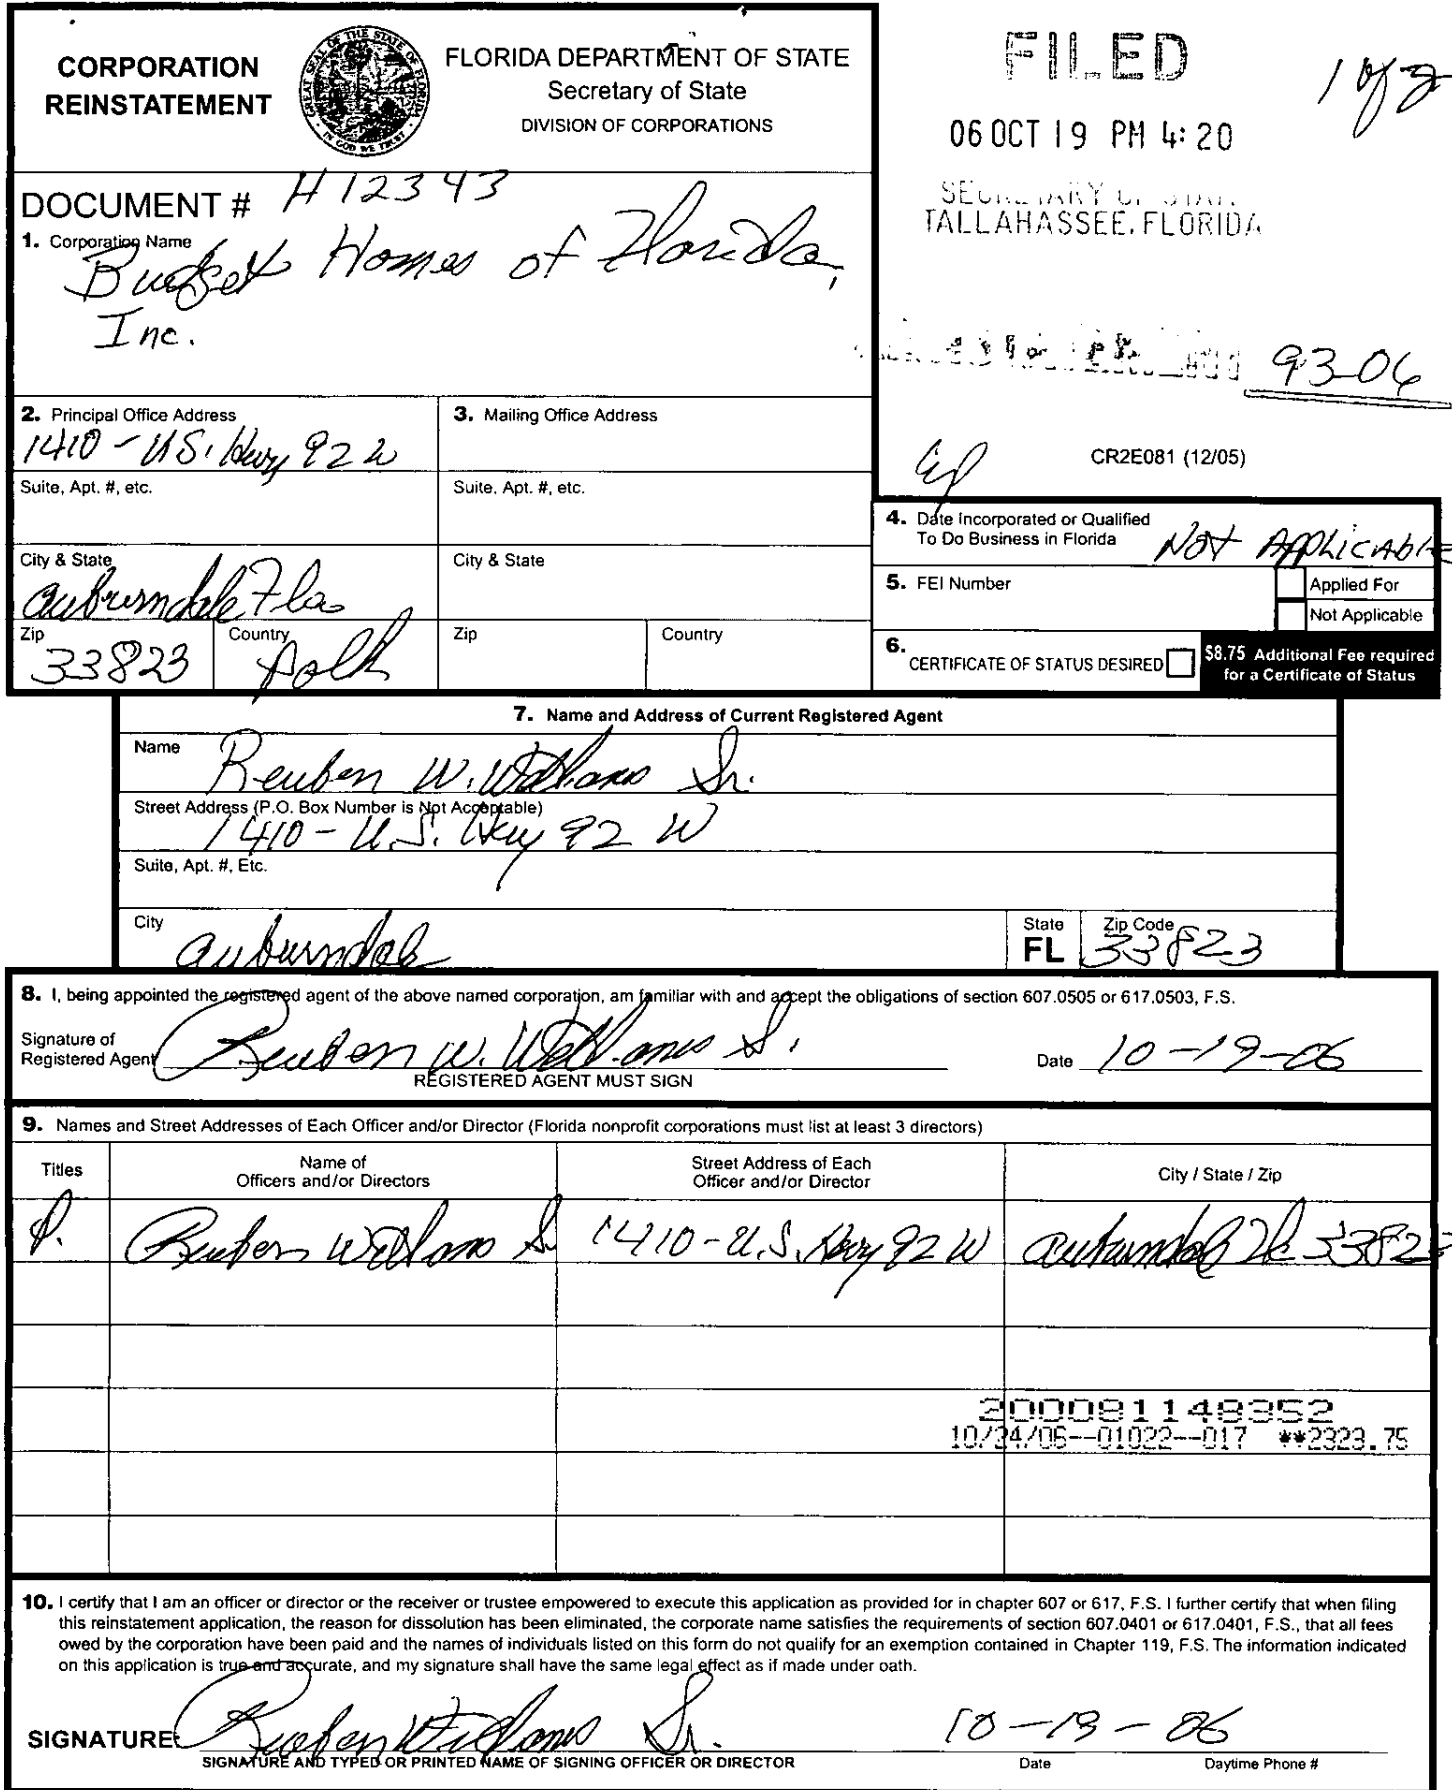 CORPORATION
REINSTATEMENT
GREAT SEAL OF THE STATE OF FLORIDA
IN GOD WE TRUST
FLORIDA DEPARTMENT OF STATE
Secretary of State
DIVISION OF CORPORATIONS
FILED
1 of 2
06 OCT 19 PM 4:20
TALLAHASSEE, FLORIDA
DOCUMENT # H12343
1. Corporation Name
Budget Homes of Florida,
Inc.
93-06
2. Principal Office Address
1410 - U.S. Hwy 92 W
3. Mailing Office Address
CR2E081 (12/05)
Suite, Apt. #, etc.
Suite, Apt. #, etc.
4. Date Incorporated or Qualified
To Do Business in Florida
Not Applicable
City & State
Auburndale Fla
City & State
5. FEI Number
Applied For
Not Applicable
Zip
33823
Country
Polk
Zip
Country
6. CERTIFICATE OF STATUS DESIRED
$8.75 Additional Fee required
for a Certificate of Status
7. Name and Address of Current Registered Agent
Name
Reuben W. Williams Sr.
Street Address (P.O. Box Number is Not Acceptable)
1410 - U.S. Hwy 92 W
Suite, Apt. #, Etc.
City
Auburndale
State
FL
Zip Code
33823
8. I, being appointed the registered agent of the above named corporation, am familiar with and accept the obligations of section 607.0505 or 617.0503, F.S.
Signature of
Registered Agent
Reuben W. Williams Sr.
Date 10-19-06
REGISTERED AGENT MUST SIGN
9. Names and Street Addresses of Each Officer and/or Director (Florida nonprofit corporations must list at least 3 directors)
Titles
Name of
Officers and/or Directors
Street Address of Each
Officer and/or Director
City / State / Zip
P.
Reuben Williams Sr.
1410 - U.S. Hwy 92 W
Auburndale Fl 33823
200081148352
10/24/06--01022--017 **2323.75
10. I certify that I am an officer or director or the receiver or trustee empowered to execute this application as provided for in chapter 607 or 617, F.S. I further certify that when filing
this reinstatement application, the reason for dissolution has been eliminated, the corporate name satisfies the requirements of section 607.0401 or 617.0401, F.S., that all fees
owed by the corporation have been paid and the names of individuals listed on this form do not qualify for an exemption contained in Chapter 119, F.S. The information indicated
on this application is true and accurate, and my signature shall have the same legal effect as if made under oath.
SIGNATURE: Reuben Williams Sr.
10-19-06
SIGNATURE AND TYPED OR PRINTED NAME OF SIGNING OFFICER OR DIRECTOR
Date
Daytime Phone #